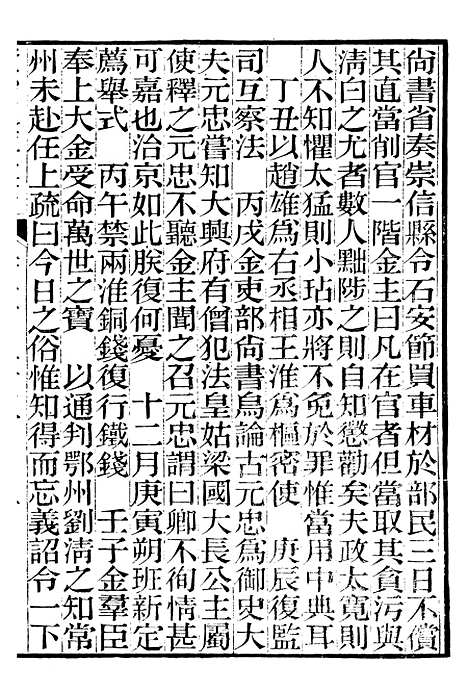 尙書省奏崇信縣令石安節買車材於部民三日不償
其直當削官一階金主曰凡在官者但當取其貪污與
淸白之尤者數人黜陟之則自知懲勸矣夫政太寬則
人不知懼太猛則小玷亦將不免於罪惟當用中典耳
丁丑以趙雄爲右丞相王淮爲樞密使　庚辰復監
司互察法　丙戌金吏部尙書烏論古元忠爲御史大
夫元忠嘗知大興府有僧犯法皇姑梁國大長公主屬
使釋之元忠不聽金主聞之召元忠謂曰卿不徇情甚
可嘉也治京如此朕復何憂　十二月庚寅朔班新定
薦舉式　丙午禁兩淮銅錢復行鐵錢　壬子金羣臣
奉上大金受命萬世之寶　以通判鄂州劉淸之知常
州未赴任上疏曰今日之俗惟知得而忘義詔令一下